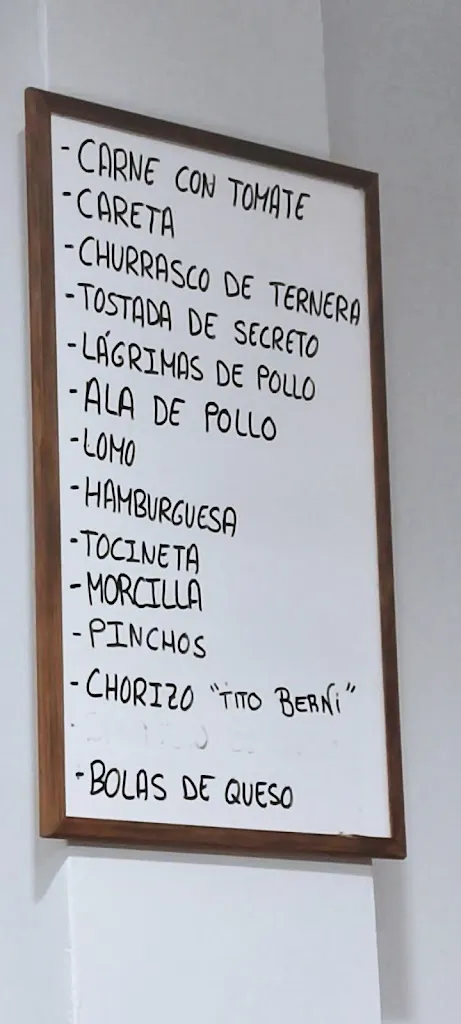 - CARNE CON TOMATE
- CARETA
- CHURRASCO DE TERNERA
- TOSTADA DE SECRETO
- LÁGRIMAS DE POLLO
- ALA DE POLLO
- LOMO
- HAMBURGUESA
- TOCINETA
- MORCILLA
- PINCHOS
- CHORIZO "TITO BERNI"
- BOLAS DE QUESO